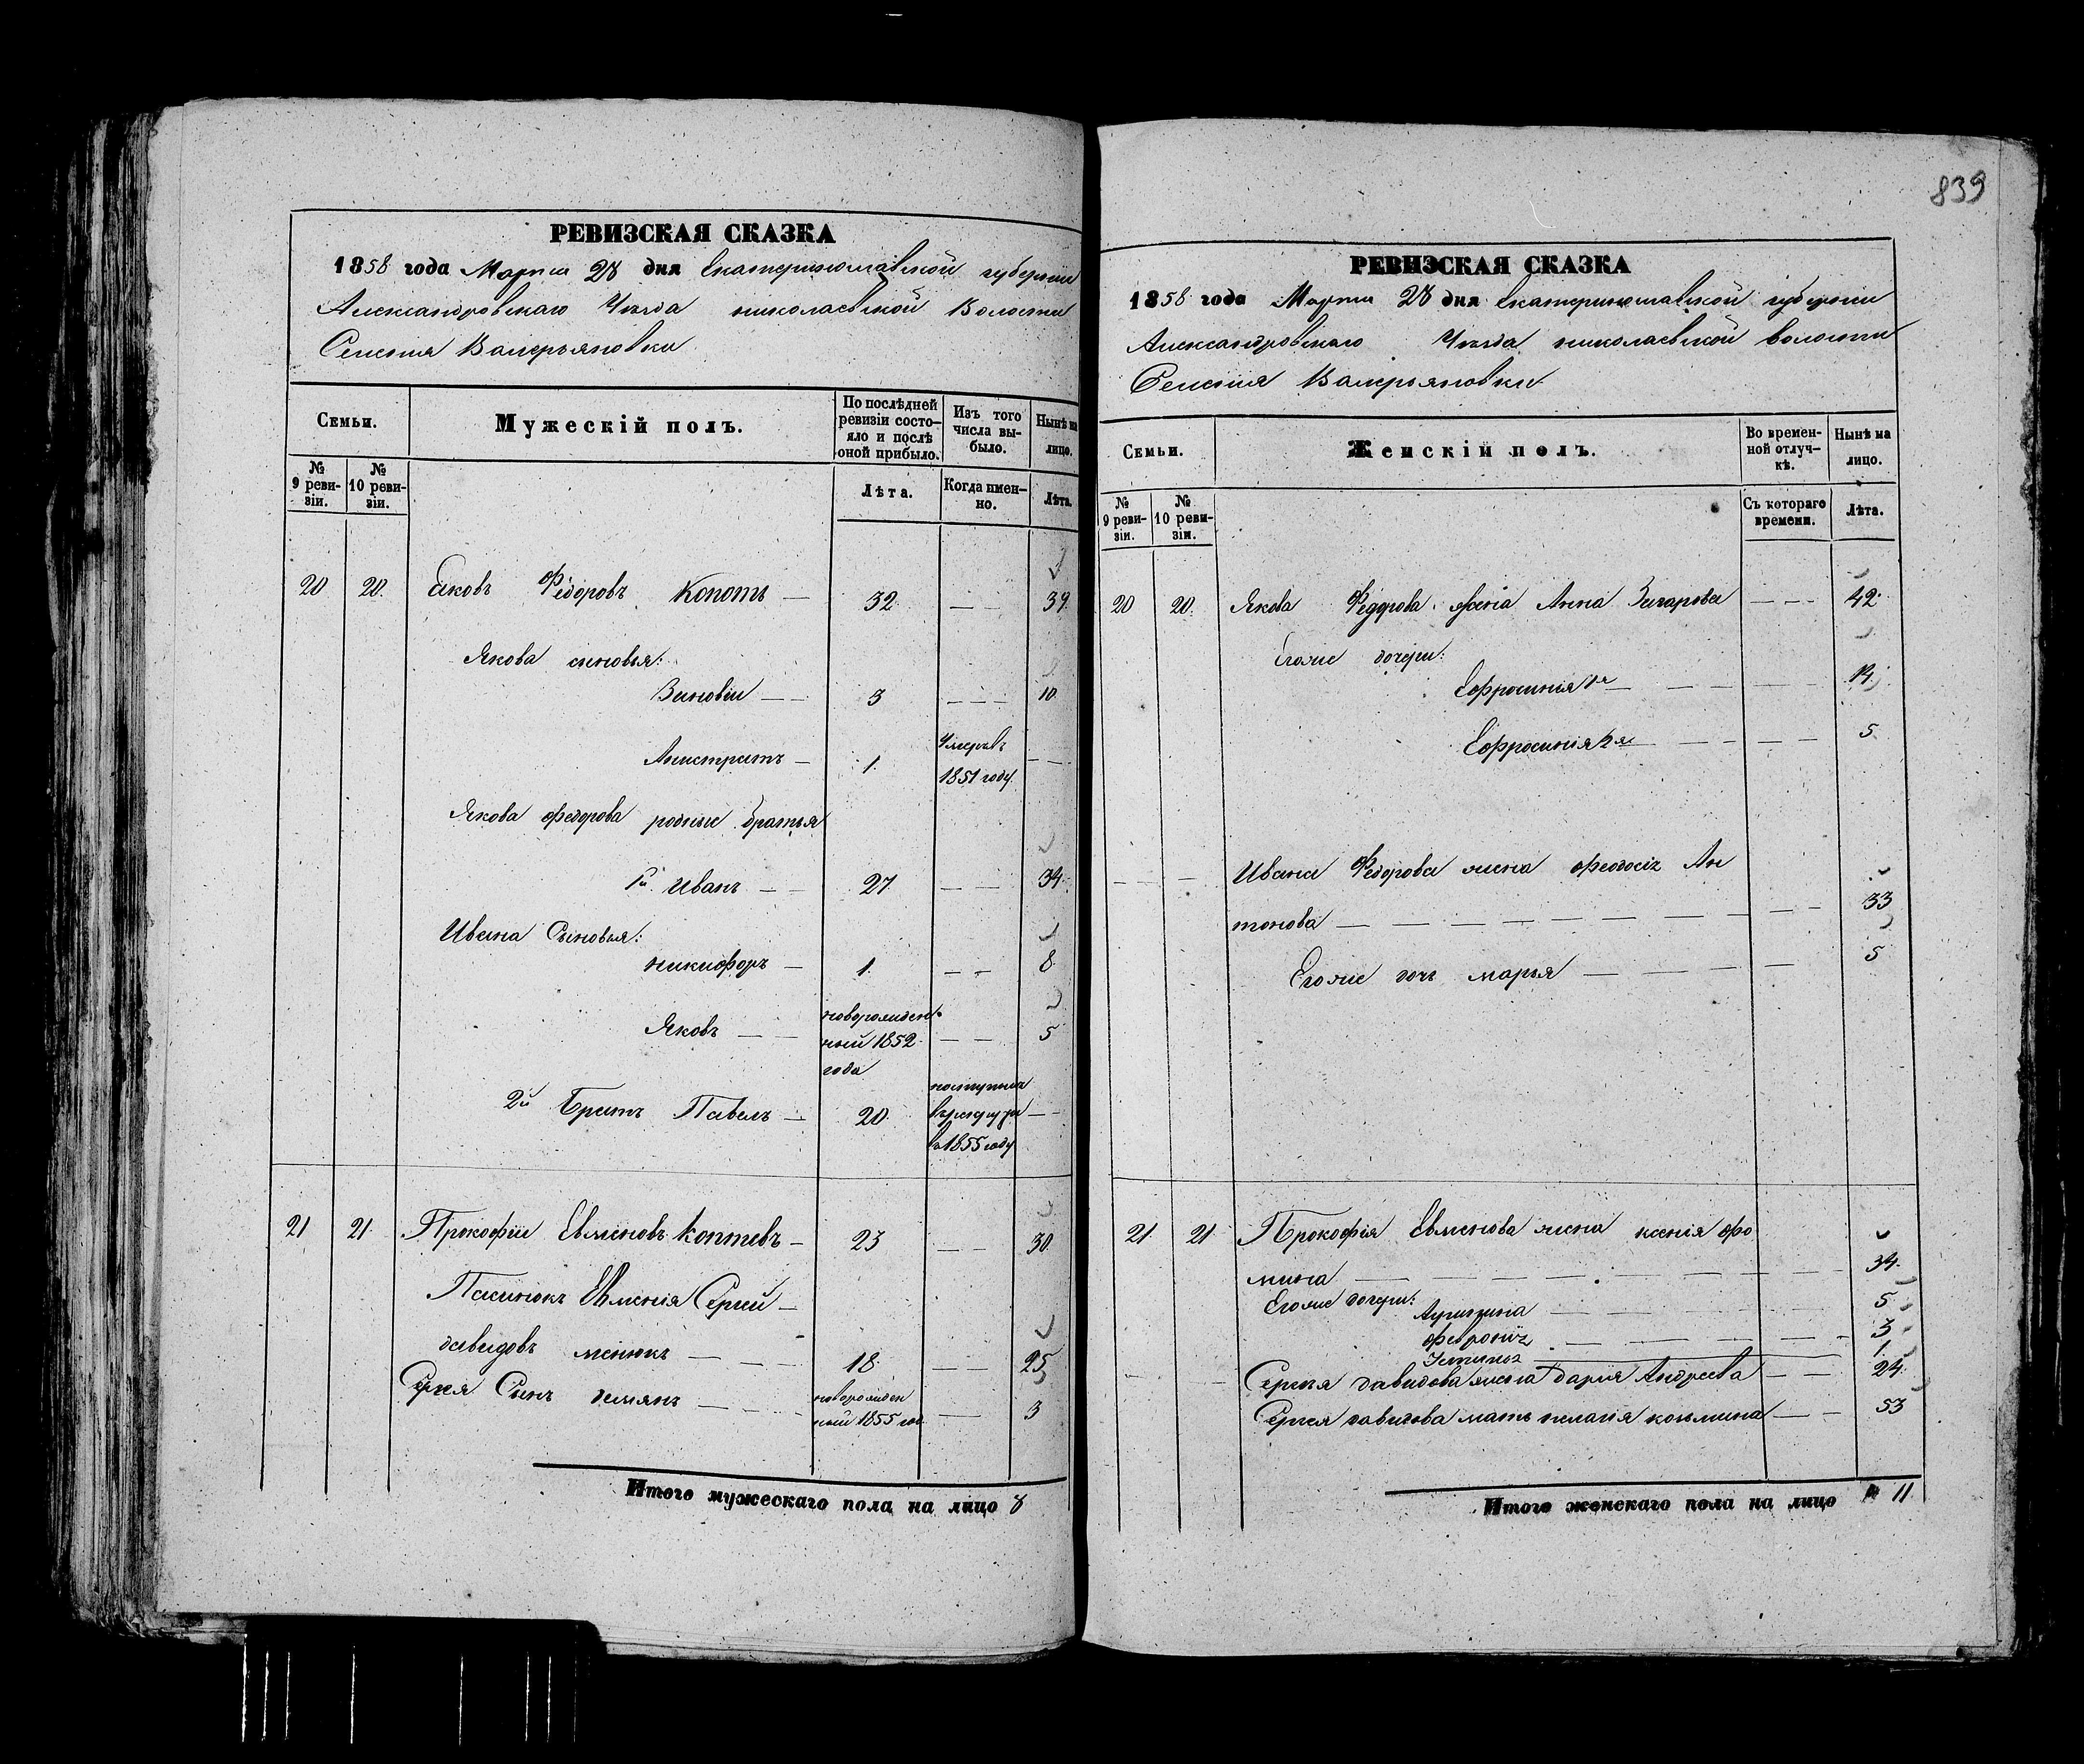 839
РЕВИЗСКАЯ СКАЗКА
1858 года Марта 28 дня Екатеринославской губернии
Александровскаго Уезда николаевской Волости
Селения Валерьяновки
Семьи.
Мужескій полъ.
По послѣдней ревизіи состо-
яло и послѣ
оной прибыло.
Изъ того
числа вы-
было.
Нынѣ на
лицо.
№
9 реви-
зіи.
№
10 реви-
зіи.
Лѣта.
Когда имен-
но.
Лѣта.
20 20. Яковъ Фёдоровъ Копоть — 32 — 39.
Якова сыновья:
Зиновіи — — 3 — — — 10.
Умеръ въ
Анистратъ — 1. 1851 году — —
Якова федорова родные братья
1й Иванъ — — 27. — — 34.
Ивана Сыновья:
никифоръ — 1. — — 8.
новорожден-
Яковъ — — ный 1852 — — 5
года
2й Братъ Павелъ — 20
поступилъ
въ рекруты — —
въ 1855 году
21 21. Прокофіи Евменовъ Коптевъ — 23 — — 30.
Пасынокъ Евменія Сергей —
давидовъ — — — 18. — — 25
Сергея Сынъ демянъ — — —
новорожден
ный 1855 го — 3
Итого мужескаго пола на лицо 8
РЕВИЗСКАЯ СКАЗКА
1858 года Марта 28 дня Екатеринославской губернии
Александровскаго Уезда николаевской волости
Селения Валерьяновки
Семьи.
Женскій полъ.
Во времен-
ной отлуч-
кѣ.
Нынѣ на
лицо.
№
9 реви-
зіи.
№
10 реви-
зіи.
Съ котораго
времени.
Лѣта.
20 20. Якова Федорова жена Анна Захарова — — — 42.
Егоже дочери:
Ефросинія 1я — — — — — 14.
Ефросинія 2я — — — — — 5
— — Ивана Федорова жена феодосія Ан
тонова — — — — — — — — — 33
Егоже дочь марья — — — — 5
21. 21 Прокофія Евменова жена ксенія фо
мина — — — — — — — — 34.
Егоже дочери:
— — — — — 5
февронія — — — — — — 3
1.
— — Сергея давидова жена дарія Андреева — — 24.
Сергея давидова мать пелагія козьмина — — 53
Итого женскаго пола на лицо 11